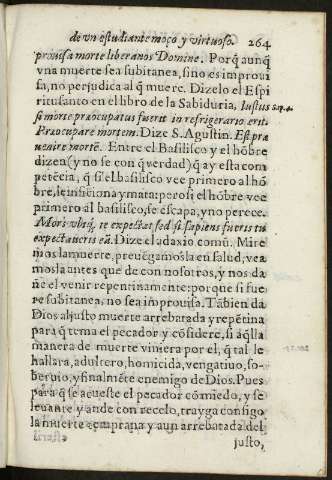 de vn estudiante moço y virtuoso. 264
prouisa morte liberanos Domine. Porq̃ aunq̃
vna muerte sea subitanea, si no es improui
sa, no perjudica al q̃ muere. Dizelo el Espi
ritusanto en el libro de la Sabiduria, Iustus Sap.4.
si morte præocupatus fuerit in refrigerario erit.
Præocupare mortem. Dize S. Agustin. Est præ
uenire mortē. Entre el Basilisco y el hōbre
dizen (y no se con q̃ verdad) q̃ ay esta com
petēcia, q̃ si el basilisco vee primero al hō
bre, le inficiona y mata: pero si el hōbre vee
primero al basilisco, se escapa, y no perece.
Mors vbiq̃, te expectat sed si sapiens fueris tu
expectaueris eā. Dize el adaxio comũ. Mire
mos la muerte, preuēgamosla en salud, vea
mosla antes que de con nosotros, y nos da
ñe el venir repentinamente: porque si fue
re subitanea, no sea improuisa. Tābien da
Dios al justo muerte arrebatada y repētina
para q̃ tema el pecador y cōsidere, si aq̃lla
manera de muerte viniera por el, q̃ tal le
hallara, adultero, homicida, vengatiuo, so-
beruio, y finalmēte enemigo de Dios. Pues
para q̃ se acueste el pecador cō miedo, y se
leuante y ande con recelo, trayga consigo
la muerte temprana y aun arrebatada del
justo,